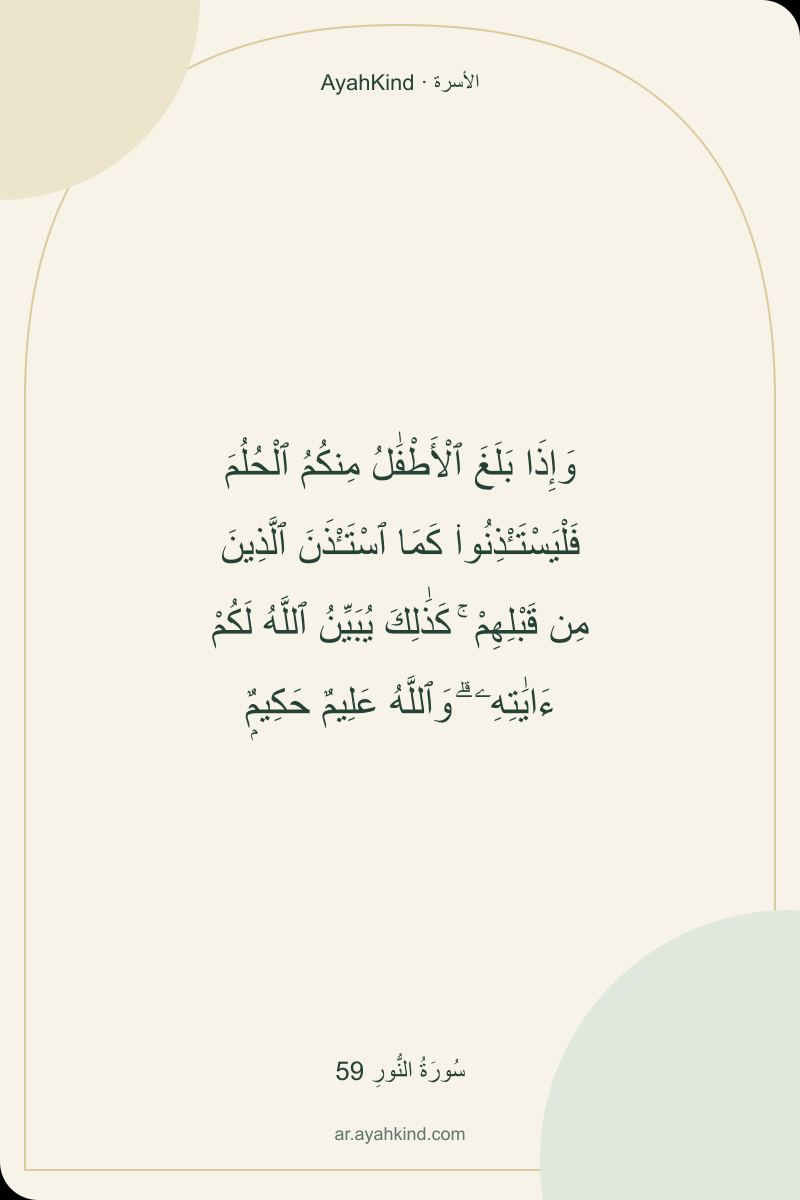 AyahKind · الأسرة
وَإِذَا بَلَغَ ٱلْأَطْفَٰلُ مِنكُمُ ٱلْحُلُمَ
فَلْيَسْتَـْٔذِنُوا۟ كَمَا ٱسْتَـْٔذَنَ ٱلَّذِينَ
مِن قَبْلِهِمْ ۚ كَذَٰلِكَ يُبَيِّنُ ٱللَّهُ لَكُمْ
ءَايَٰتِهِۦ ۗ وَٱللَّهُ عَلِيمٌ حَكِيمٌۭ
سُورَةُ النُّورِ 59
ar.ayahkind.com